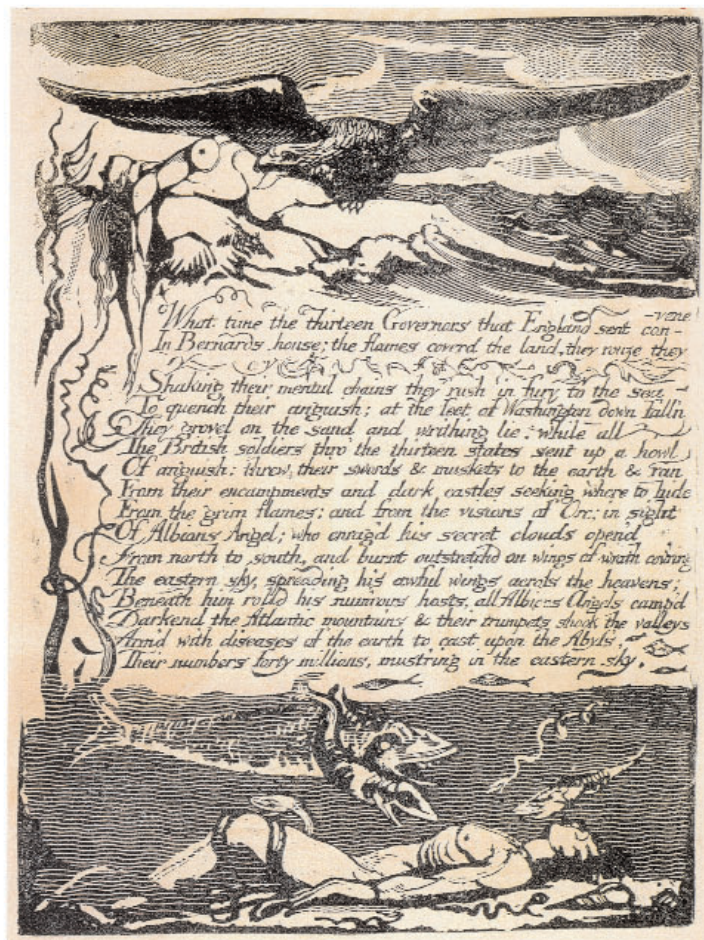 -vene
What time the thirteen Governors that England sent con-
In Bernards house; the flames coverd the land, they rouze they
cry
Shaking their mental chains they rush in fury to the sea
To quench their anguish; at the feet of Washington down fall'n
They grovel on the sand and writhing lie: while all
The British soldiers thro' the thirteen states sent up a howl
Of anguish: threw their swords & muskets to the earth & ran
From their encampments and dark castles seeking where to hide
From the grim flames; and from the visions of Orc: in sight
Of Albions Angel; who enrag'd his secret clouds open'd
From north to south, and burnt outstretchd on wings of wrath cov'ring
The eastern sky, spreading his awful wings across the heavens;
Beneath him rolld his num'rous hosts, all Albions Angels camp'd
Darkend the Atlantic mountains & their trumpets shook the valleys
Arm'd with diseases of the earth to cast upon the Abyss,
Their numbers forty millions, must'ring in the eastern sky.